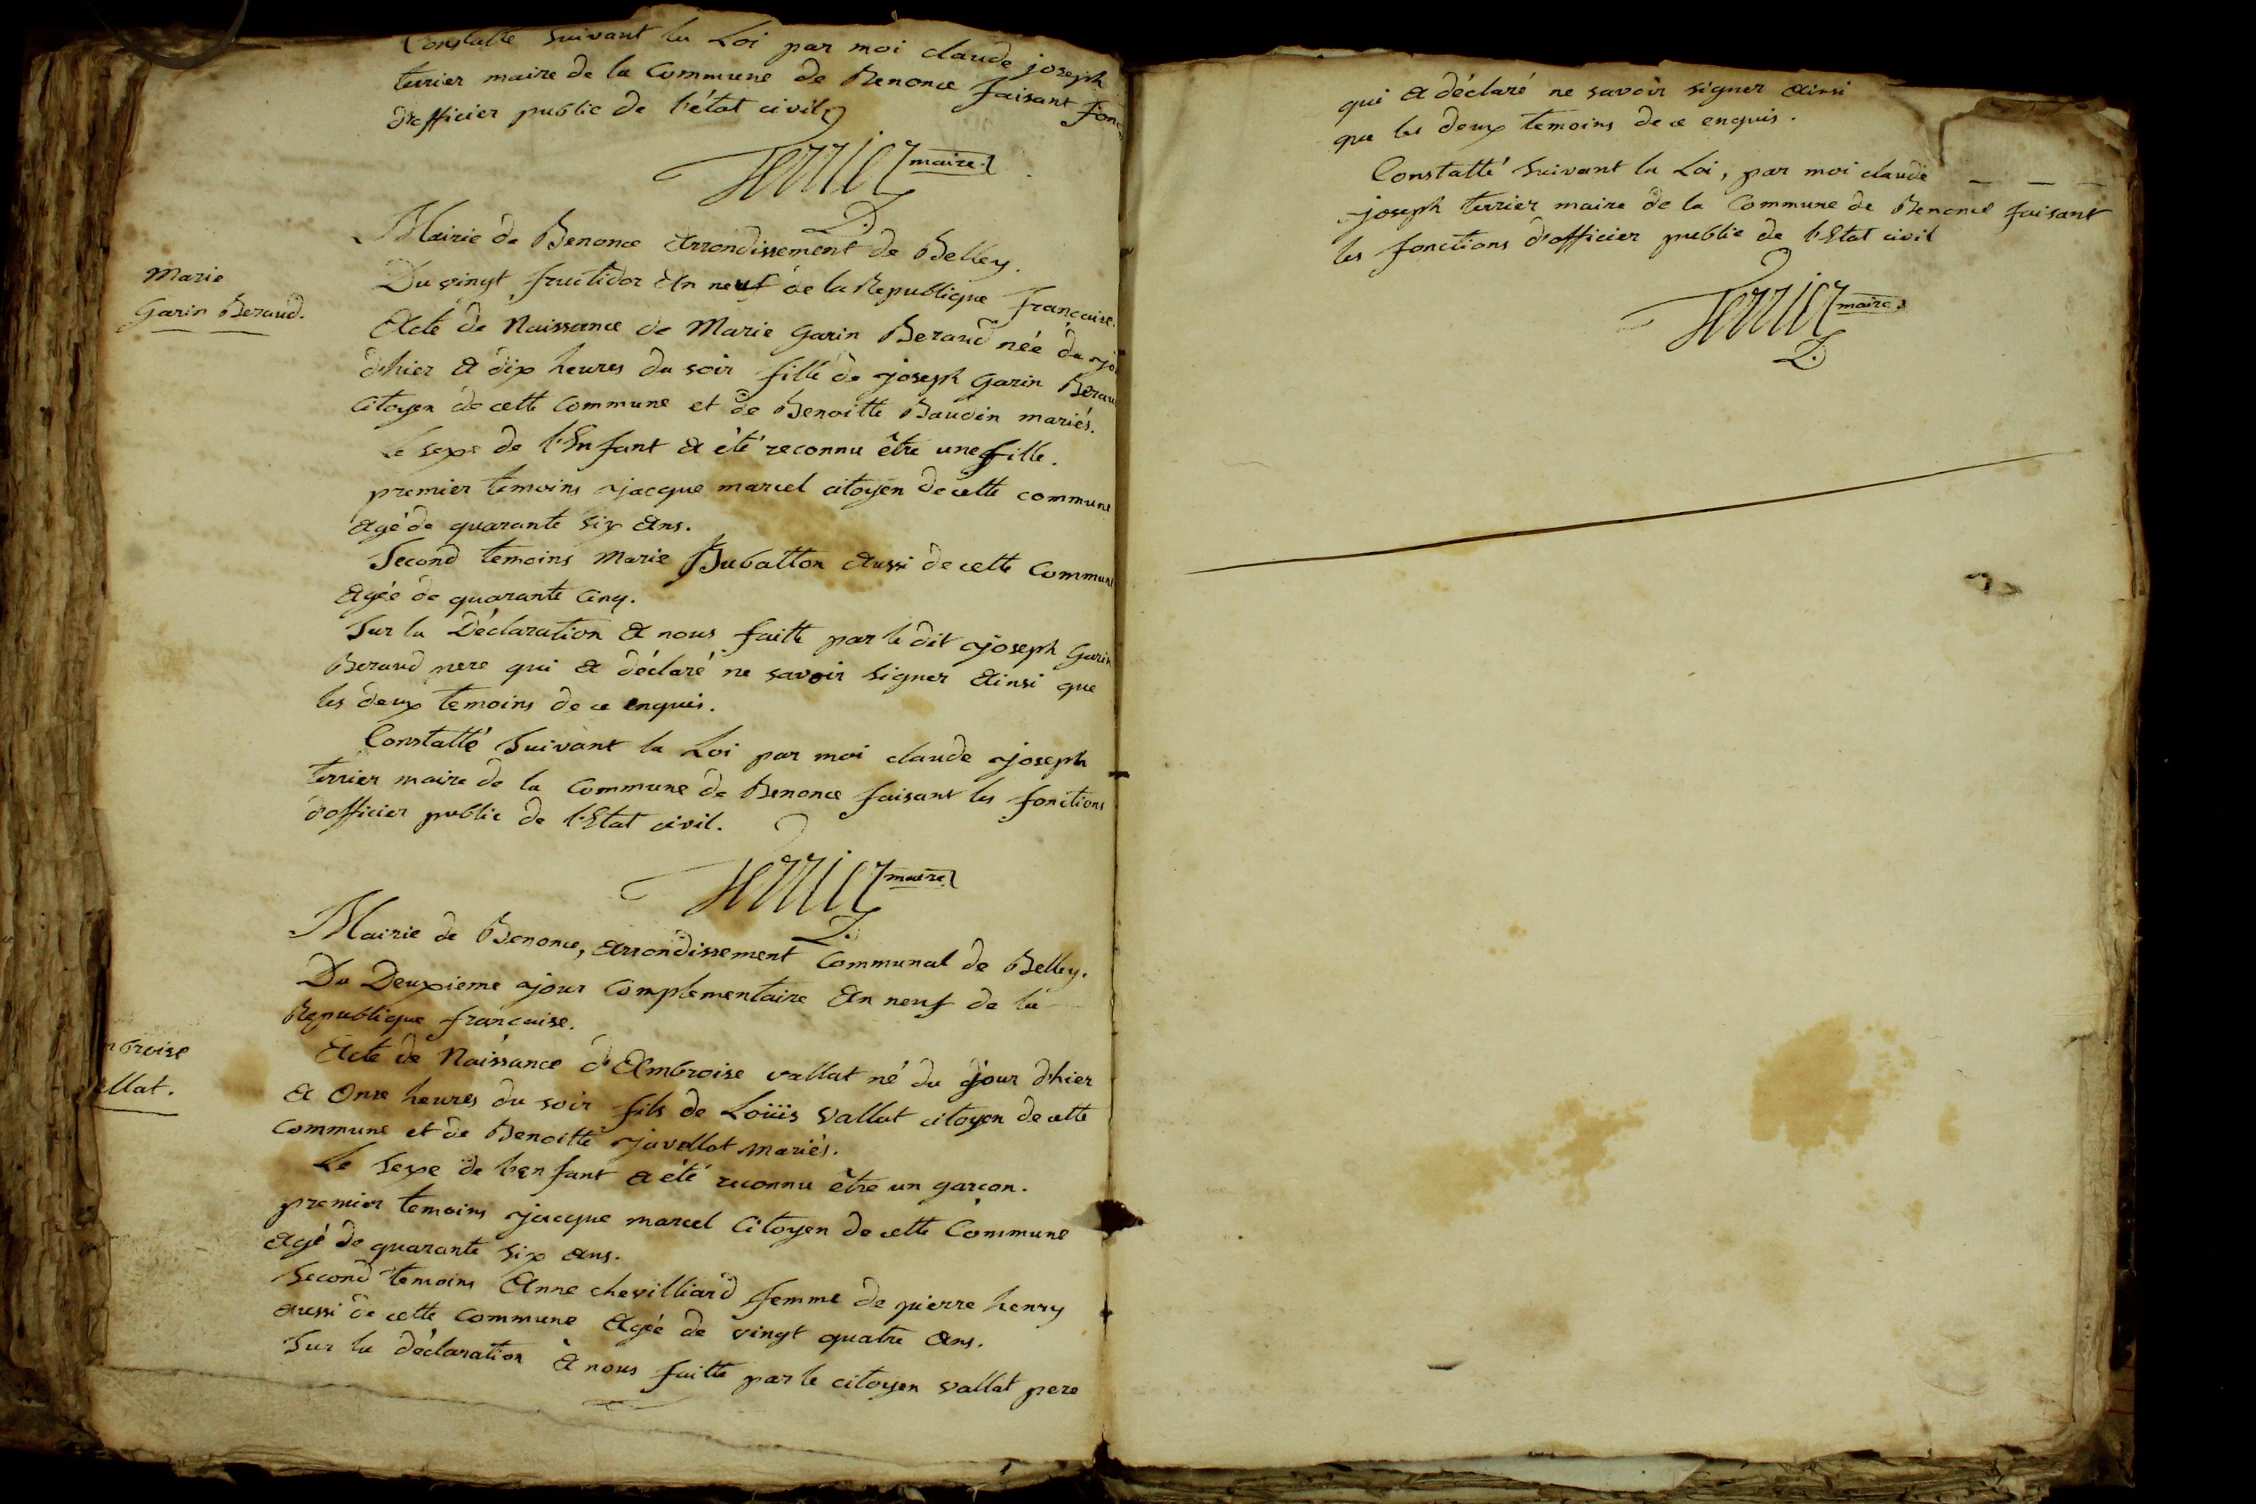 Constatté suivant la Loi par moi claude joseph
terrier maire de la Commune de Benonce faisant fonc
d'officier public de l'état civil
Terrier maire
Mairie de Benonce Arrondissement de Belley.
Marie
Garin Beraud.
Du vingt fructidor An neuf de la Republique francaise.
Acte de Naissance de Marie Garin Beraud née du jo
d'hier a dix heures du soir fille de joseph Garin Berau
Citoyen de cette Commune et de Benoitte Baudin mariés.
Le sexe de l'Enfant a été reconnu être une fille.
premier temoins jacque marcel citoyen de cette commune
agé de quarante six ans.
Second temoins Marie Bubatton aussi de cette Commune
agée de quarante cinq.
Sur la Déclaration a nous faitte par le dit joseph Garin
Beraud pere qui a déclaré ne savoir signer ainsi que
les deux temoins de ce enquis.
Constatté suivant la Loi par moi claude joseph
terrier maire de la Commune de Benonce faisant les fonctions
d'officier public de l'Etat civil.
Terrier maire
Mairie de Benonce, arrondissement Communal de Belley.
Du Deuxieme jour Complementaire An neuf de la
Republique francaise.
mbroise
allat.
Acte de Naissance d'Ambroise vallat né du jour d'hier
a Onze heures du soir fils de Loüis vallat citoyen de cette
Commune et de Benoitte javellot mariés.
Le sexe de l'enfant a été reconnu être un garcon.
premier temoins jacque marcel Citoyen de cette Commune
agé de quarante six ans.
Second temoins Anne chevilliard femme de pierre henry
aussi de cette Commune agée de vingt quatre ans.
Sur la déclaration à nous faitte par le citoyen vallat pere
qui a déclaré ne savoir signer ainsi
que les deux temoins de ce enquis.
Constatté suivant la Loi, par moi claude
joseph terrier maire de la Commune de Benonce faisant
les fonctions d'officier public de l'Etat civil
Terrier maire